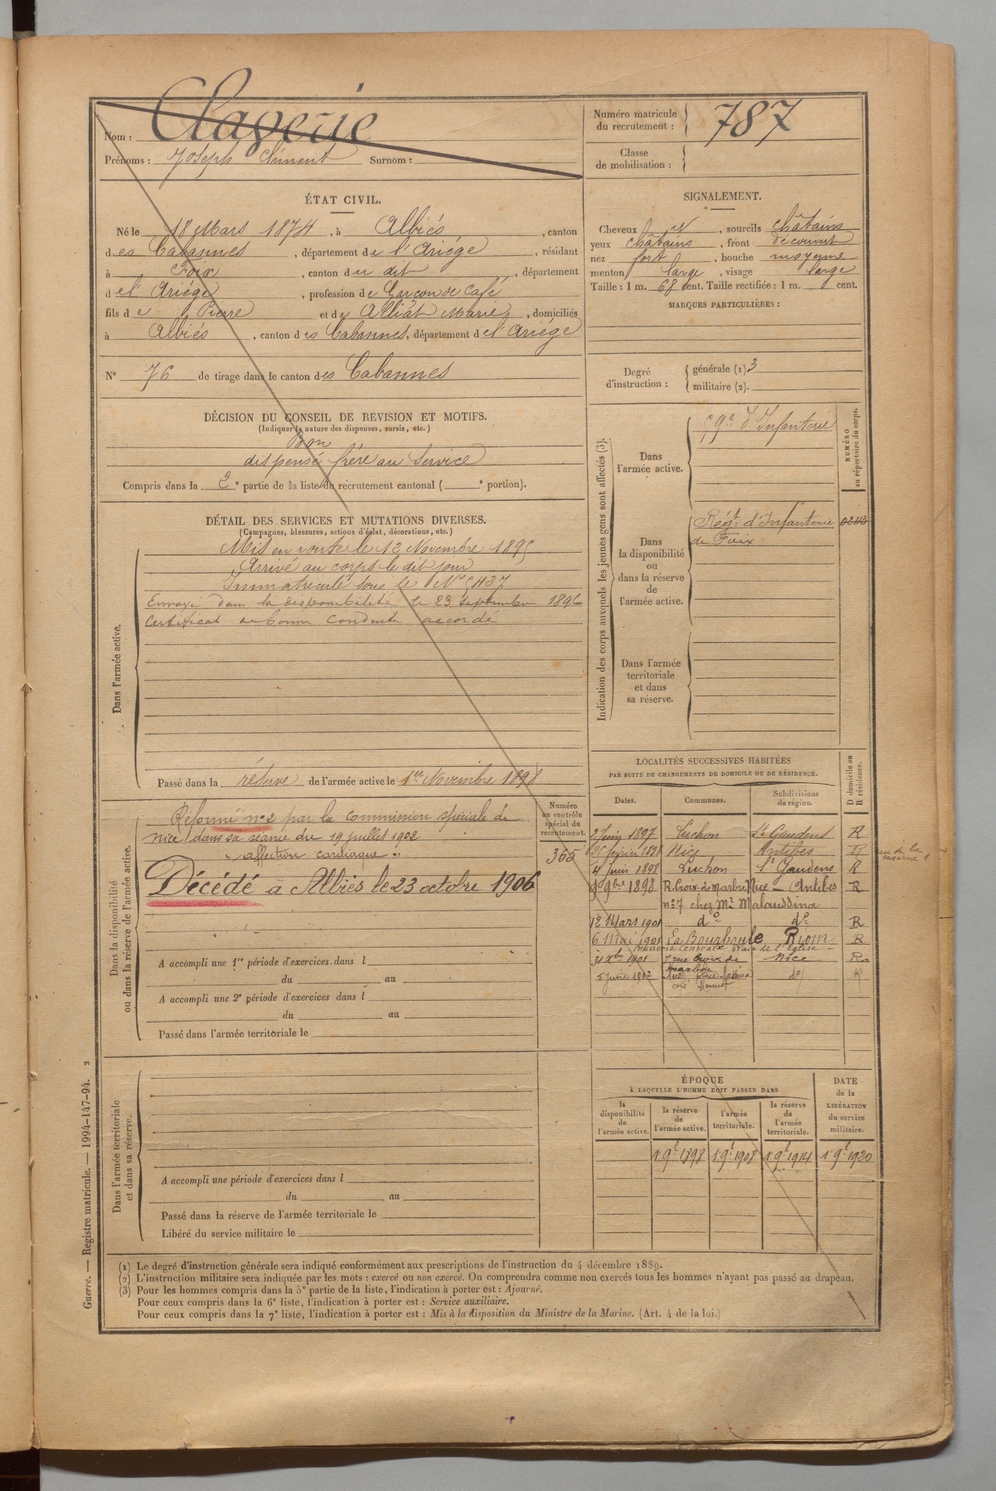 Nom : Claverie
Prénoms : Joseph Clément Surnom :
Numéro matricule du recrutement : 787
Classe de mobilisation :
ÉTAT CIVIL.
Né le 18 Mars 1874, à Albiés, canton
des Cabannes, département de l'Ariège, résidant
à Foix, canton du dit, département
de l'Ariége, profession de Garçon de Café
fils de Pierre et de Alliat Marie, domiciliés
à Albiés, canton des Cabannes, département de l'Ariége
N° 76 de tirage dans le canton des Cabannes
SIGNALEMENT.
Cheveux N, sourcils châtains
yeux châtains, front découvert
nez fort, bouche moyenne
menton large, visage large
Taille : 1 m. 68 cent. Taille rectifiée : 1 m. cent.
MARQUES PARTICULIÈRES :
Degré d'instruction : générale (1) 3
militaire (2).
DÉCISION DU CONSEIL DE REVISION ET MOTIFS.
(Indiquer la nature des dispenses, sursis, etc.)
Bon
dispensé frère au Service
Compris dans la 2e partie de la liste du recrutement cantonal ( e portion).
DÉTAIL DES SERVICES ET MUTATIONS DIVERSES.
(Campagnes, blessures, actions d'éclat, décorations, etc.)
Dans l'armée active.
Mis en route le 13 Novembre 1895
Arrivé au corps le dit jour
Immatriculé sous le N°
Envoyé dans la disponibilité le 23 septembre 1896
Certificat de bonne conduite accordé
Passé dans la réserve de l'armée active le 1er Novembre 1898
Indication des corps auxquels les jeunes gens sont affectés (3).
NUMÉRO au répertoire du corps.
Dans l'armée active.
59e d'Infanterie
Dans la disponibilité ou dans la réserve de l'armée active.
Régt d'Infanterie
de Foix
Dans l'armée territoriale et dans sa réserve.
Dans la disponibilité ou dans la réserve de l'armée active.
Numéro au contrôle spécial du recrutement.
365
Réformé n°2 par la Commission spéciale de
Nice dans sa séance du 19 juillet 1902
"affection cardiaque".
Décédé à Albiès le 23 octobre 1906
A accompli une 1re période d'exercices dans l
du au
A accompli une 2e période d'exercices dans l
du au
Passé dans l'armée territoriale le
LOCALITÉS SUCCESSIVES HABITÉES
PAR SUITE DE CHANGEMENTS DE DOMICILE OU DE RÉSIDENCE.
Dates. Communes. Subdivisions de région. D domicile ou R résidence.
2 Juin 1897 Luchon St Gaudens R
février 1898 Nice Antibes
4 juin 1898 Luchon St Gaudens R
9bre 1898 R. Croix-de-Marbre Nice - Antibes R
n°7 chez Mr Malaussina
12 Mars 1901 do do R
6 Mai 1901 La Bourboule Riom R
31 Xbre 1901 7 rue Croix de Marbre Nice R
5 juin 1902 R
Dans l'armée territoriale et dans sa réserve.
A accompli une période d'exercices dans l
du au
Passé dans la réserve de l'armée territoriale le
Libéré du service militaire le
ÉPOQUE
À LAQUELLE L'HOMME DOIT PASSER DANS
la disponibilité de l'armée active. la réserve de l'armée active. l'armée territoriale. la réserve de l'armée territoriale.
DATE de la LIBÉRATION du service militaire.
1 9e 1898 1 9e 1908 1 9e 1914 1 9e 1920
(1) Le degré d'instruction générale sera indiqué conformément aux prescriptions de l'instruction du 4 décembre 1889.
(2) L'instruction militaire sera indiquée par les mots : exercé ou non exercé. On comprendra comme non exercés tous les hommes n'ayant pas passé au drapeau.
(3) Pour les hommes compris dans la 5e partie de la liste, l'indication à porter est : Ajourné.
Pour ceux compris dans la 6e liste, l'indication à porter est : Service auxiliaire.
Pour ceux compris dans la 7e liste, l'indication à porter est : Mis à la disposition du Ministre de la Marine. (Art. 4 de la loi.)
Guerre. — Registre matricule. — 1994-147-94. 2